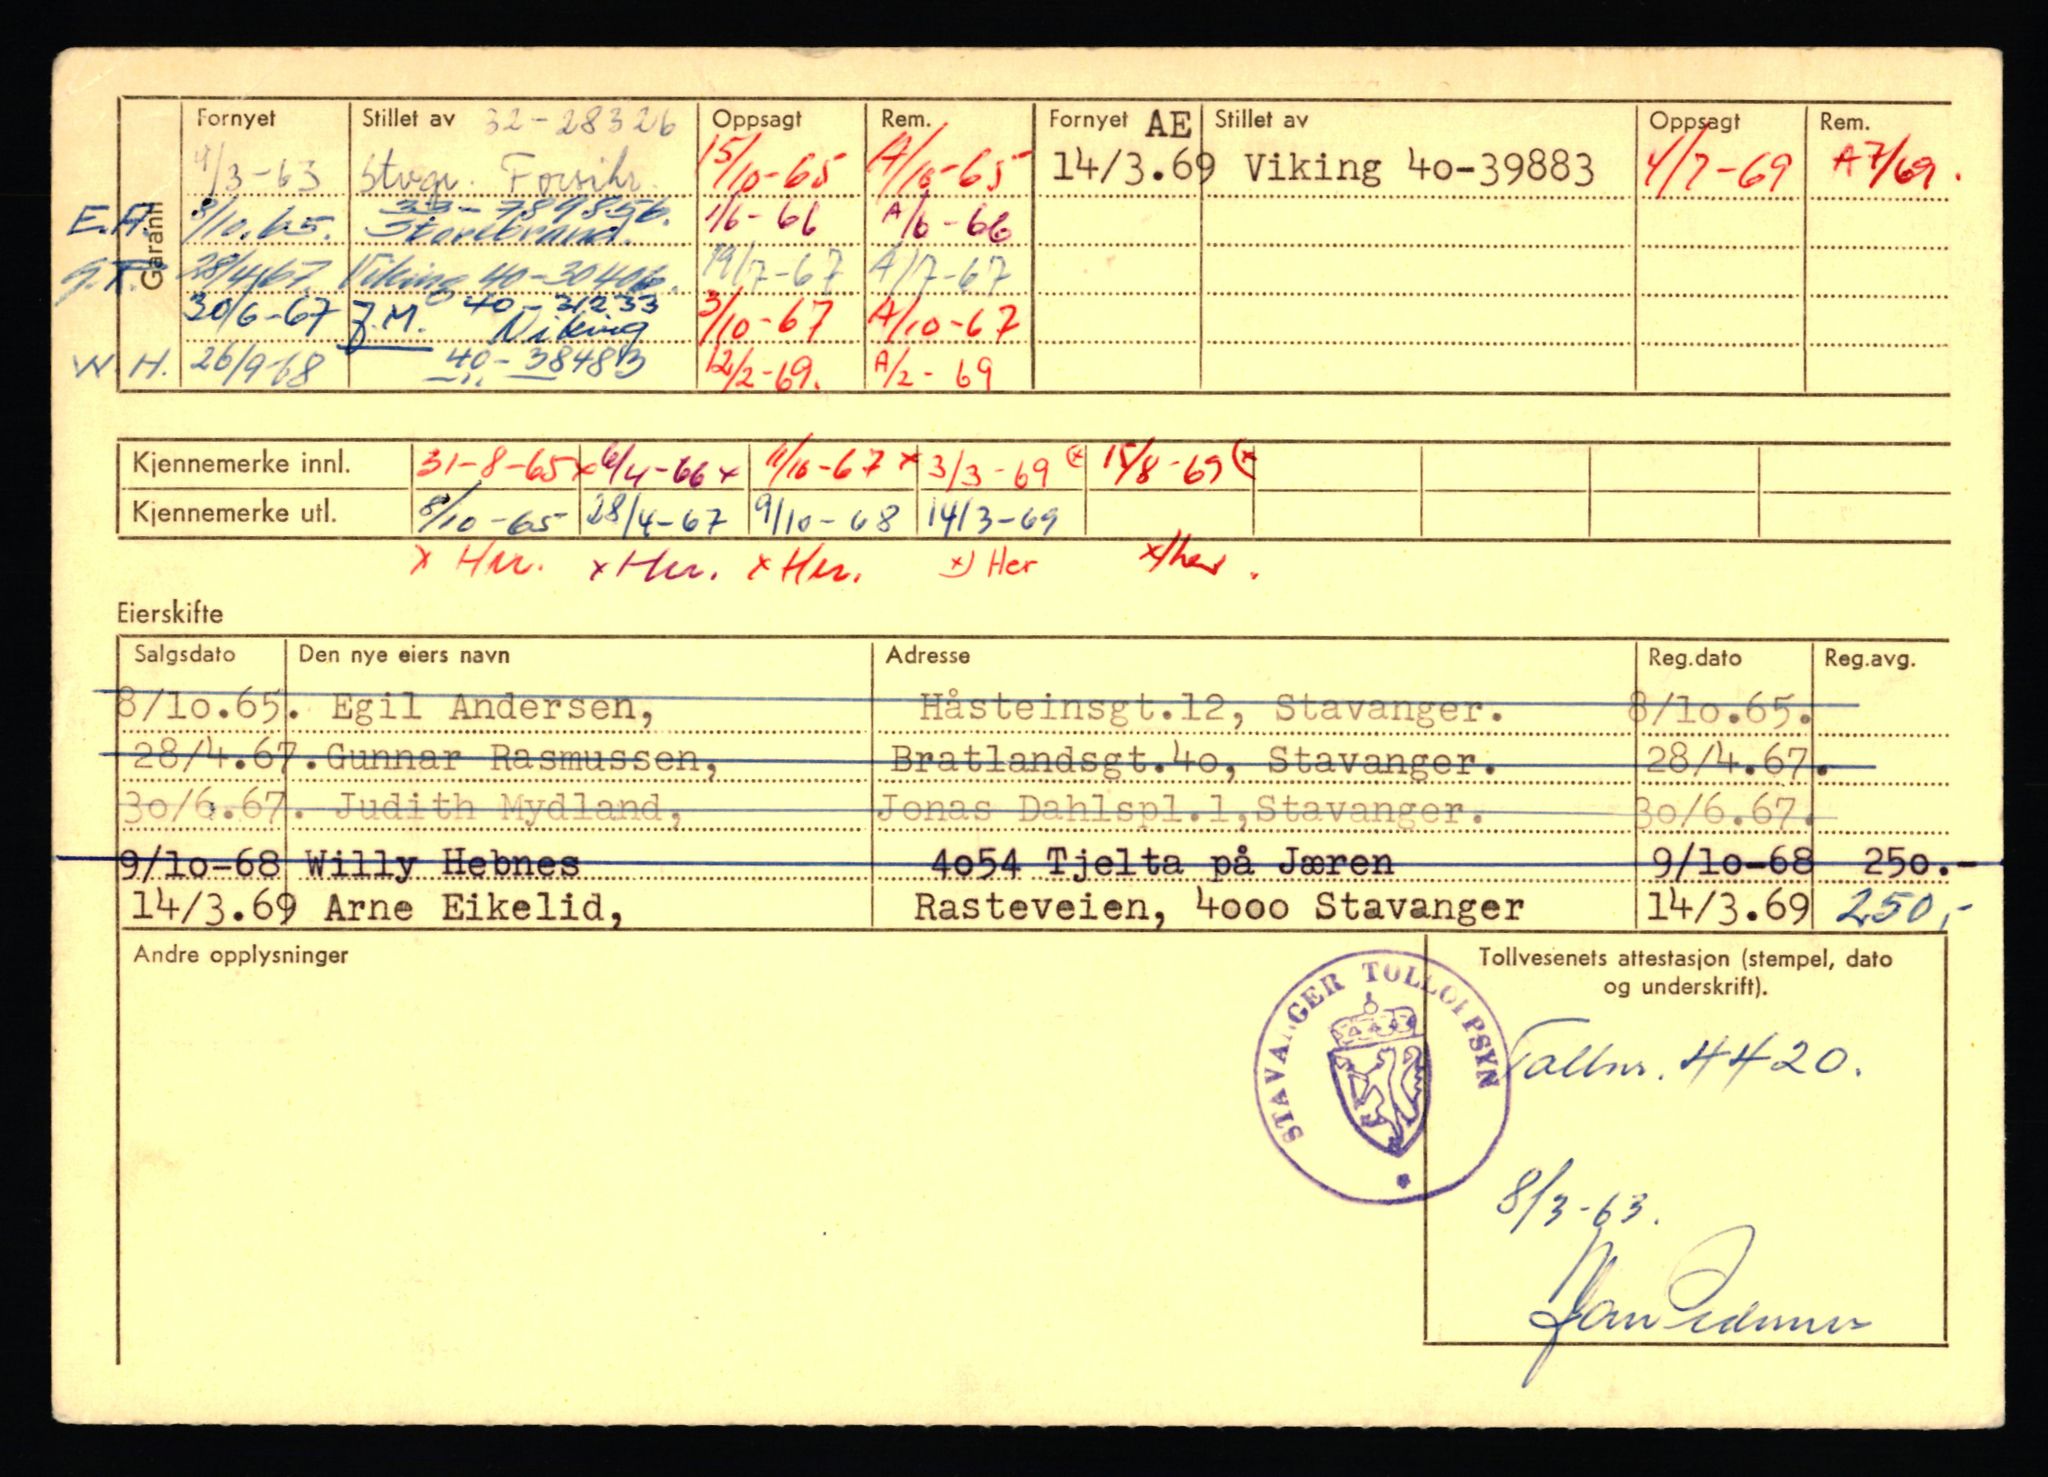 Garanti
Fornyet Stillet av 32-28326 Oppsagt Rem. Fornyet AE Stillet av Oppsagt Rem.
4/3-63 Stvgr. Forsikr. 15/10-65 A/10-65 14/3.69 Viking 4o-39883 4/7-69 A7/69.
E.A. 8/10.65. 33-789856. Storebrand. 1/6-66 A/6-66
28/4/67. Viking 40-30406. 19/7-67 A/7-67
30/6-67 J.M. 40-31233 Viking 3/10-67 A/10-67
W.H. 26/9-68 40-38483 12/2-69. A/2-69
Kjennemerke innl. 31-8-65 x 6/4-66 x 11/10-67 x 3/3-69 (x 15/8-69 (x
Kjennemerke utl. 8/10-65 28/4-67 9/10-68 14/3-69
x Her. x Her. x Her. x) Her x) her.
Eierskifte
Salgsdato Den nye eiers navn Adresse Reg.dato Reg.avg.
8/1o.65. Egil Andersen, Håsteinsgt.12, Stavanger. 8/1o.65.
28/4.67. Gunnar Rasmussen, Bratlandsgt.4o, Stavanger. 28/4.67.
3o/6.67. Judith Mydland, Jonas Dahlspl.1,Stavanger. 3o/6.67.
9/1o-68 Willy Hebnes 4o54 Tjelta på Jæren 9/1o-68 25o.-
14/3.69 Arne Eikelid, Rasteveien, 4ooo Stavanger 14/3.69 250,-
Andre opplysninger
Tollvesenets attestasjon (stempel, dato
og underskrift).
STAVANGER TOLLOPPSYN
Tollnr. 4420.
8/3-63.